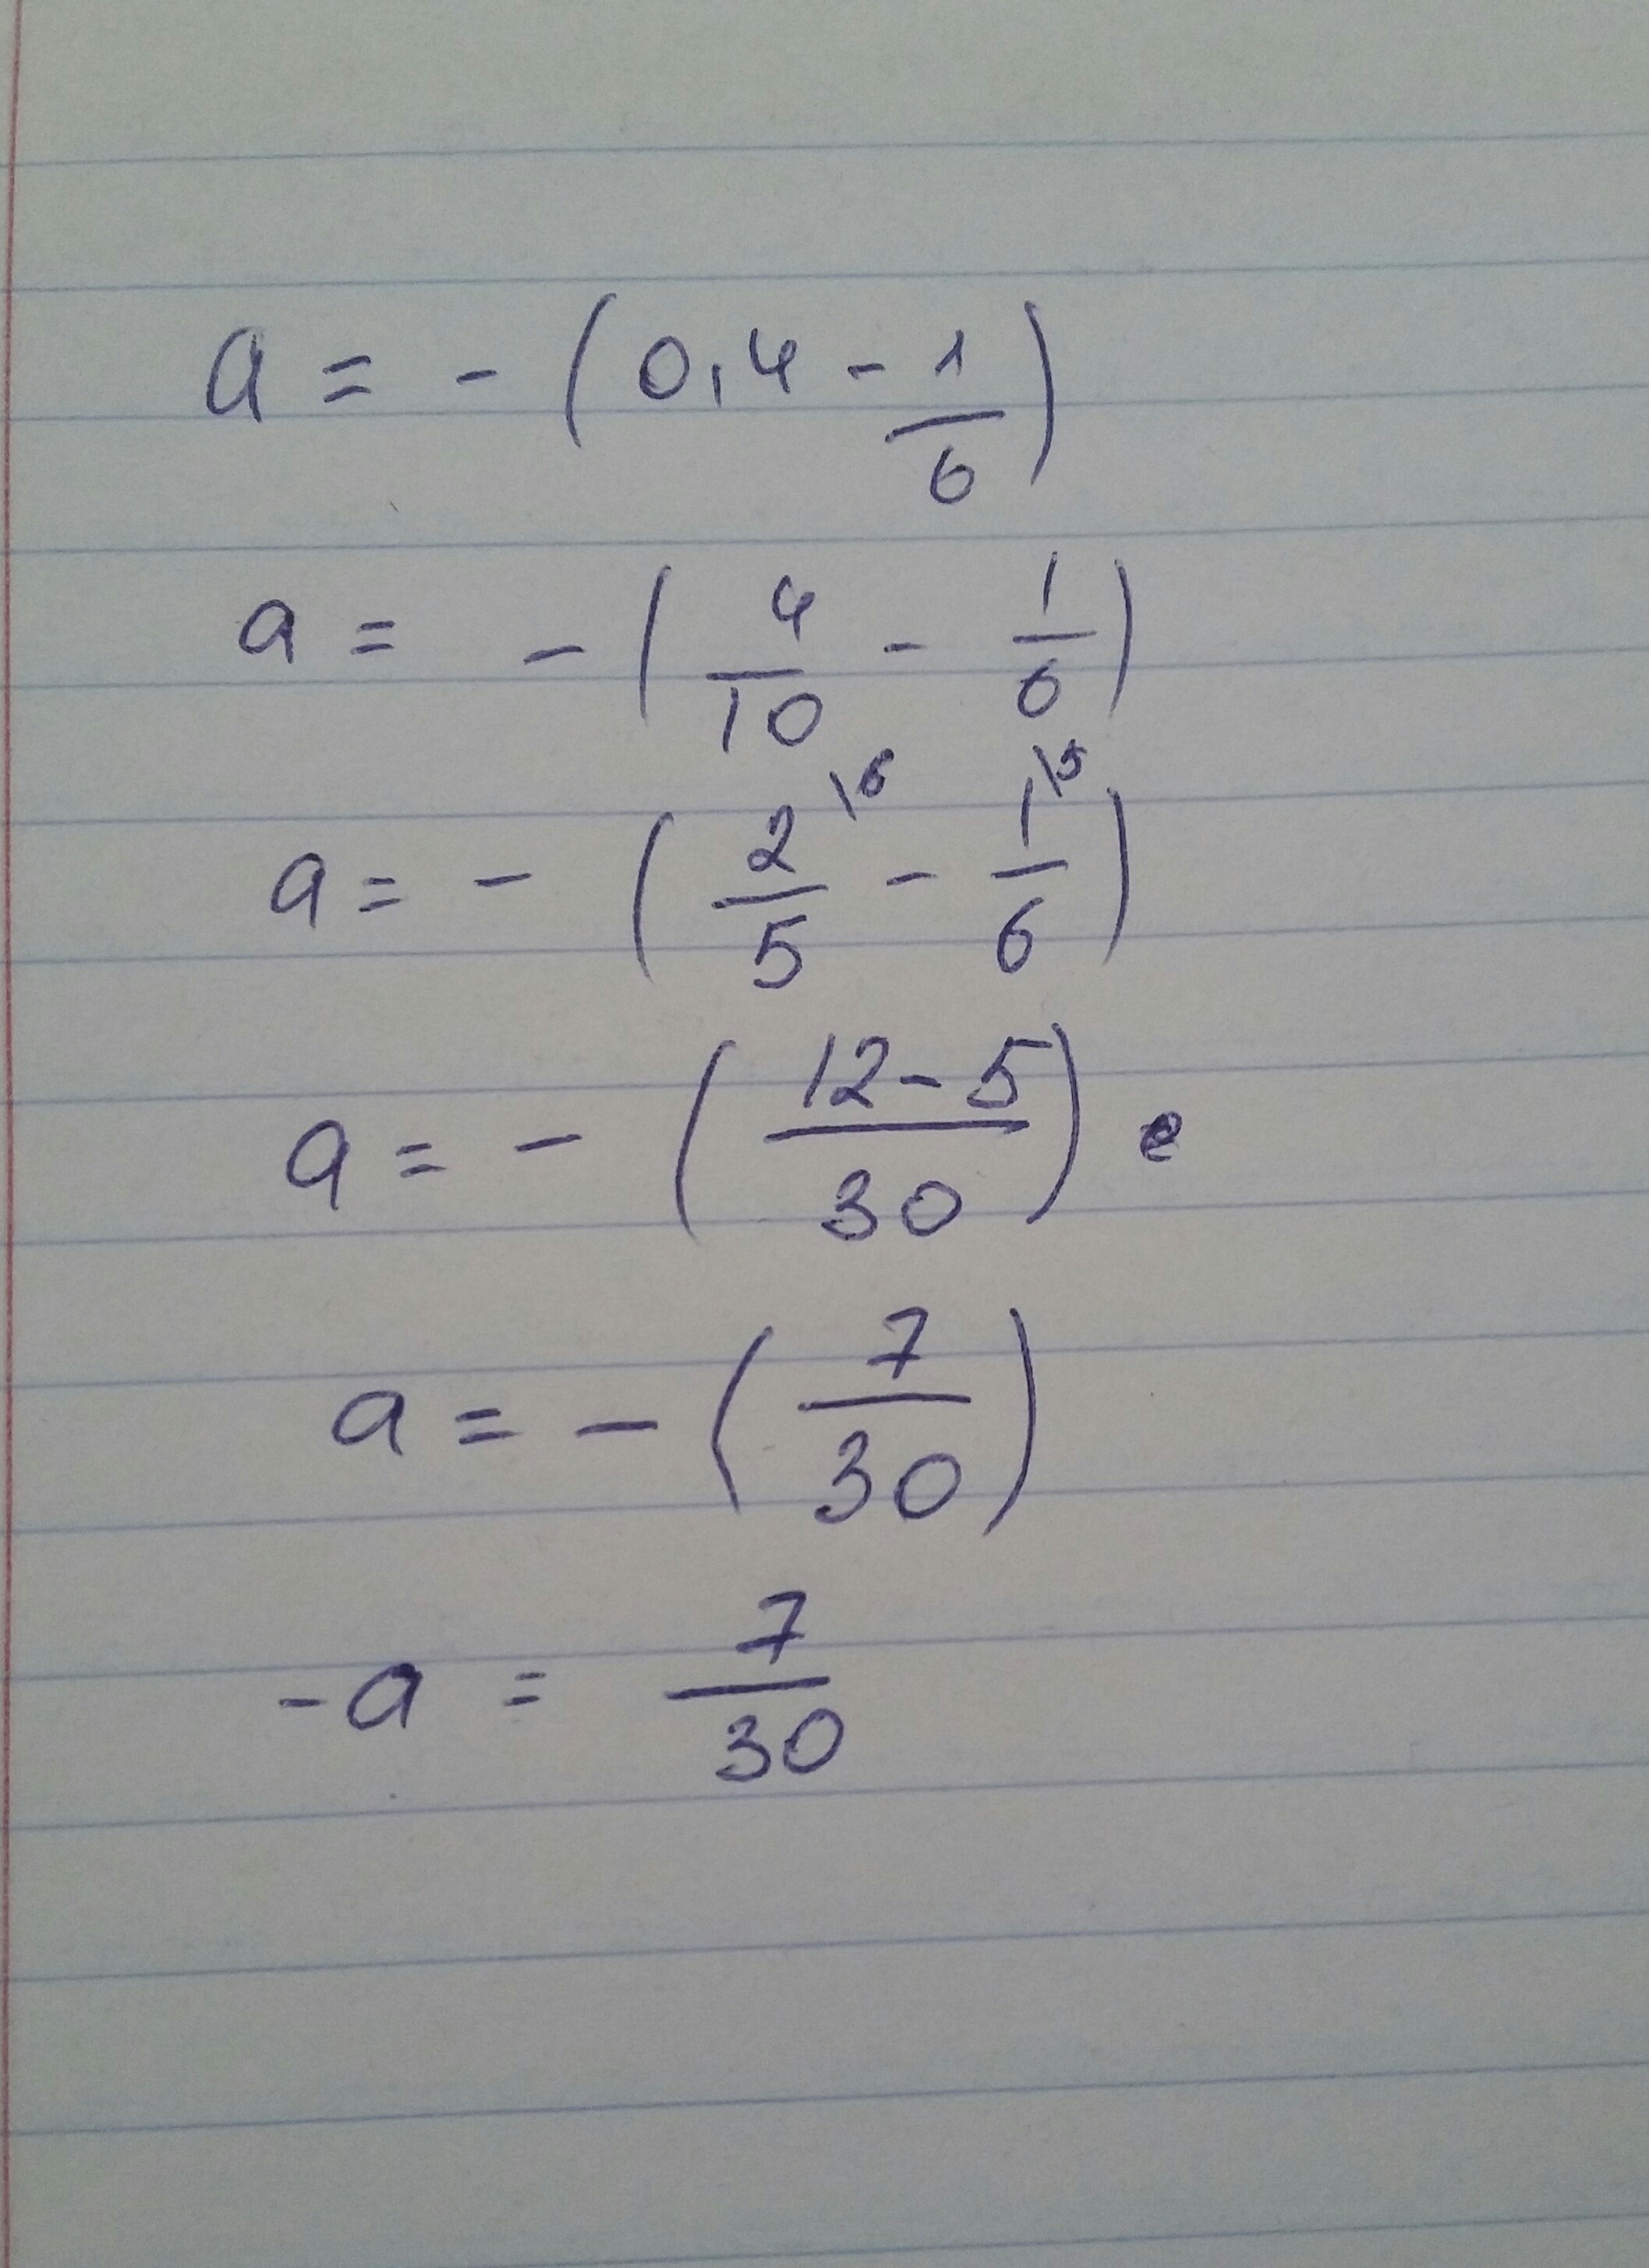 a = - (0,4 - 1/6)
a = - (4/10 - 1/6)
a = - (2/5 \6 - 1/6 \5)
a = - (12-5/30)
a = - (7/30)
-a = 7/30